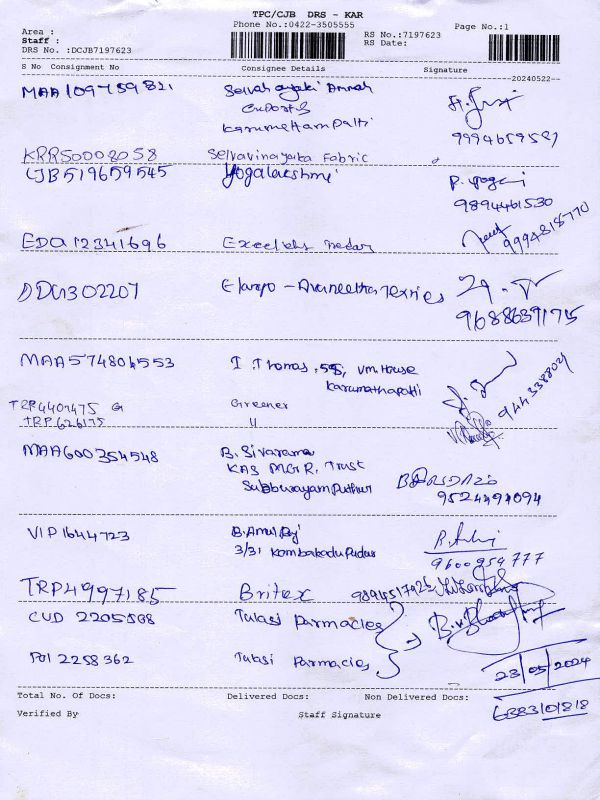 TPC/CJB DRS - KAR
Phone No.:0422-3505555
Page No.:1
Area :
Staff :
DRS No. :DCJB7197623
RS No.:7197623
RS Date:
S No Consignment No Consignee Details Signature
20240522
MAA109759821 Selvanayaki Ammah
Exports
Karumattampatti
9994659587
KRR50008058 Selvavinayaka Fabric
CJB519659545 Yogalakshmi P. Yogani
9894461530
EDQ12341696 9994818770
DDG1302207 96886391715
MAA574804553 I. Thomas, 55, VM. House
Karumathapatti
9443388021
TRP4401475 G Greener
TRP626175 "
MAA600354548 B. Sivarama
KAS MGR. Trust
Subburayamputhur
9524491094
VIP1644723 B. Amul Raj
3/31 Kambakadu Pudur
9600959777
TRP4997185 Britex 9894517926
CUD 2205808 Tulasi Parmacies
POI 2258362 Tulasi Parmacies
23/05/2024
6383101818
Total No. Of Docs: Delivered Docs: Non Delivered Docs:
Verified By Staff Signature